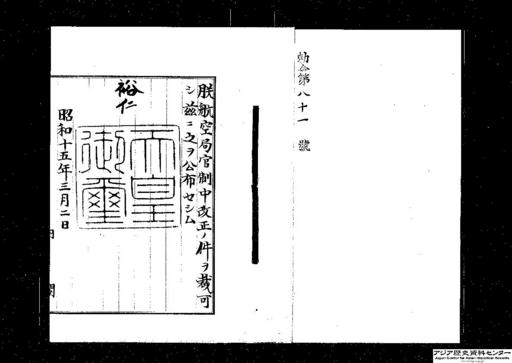 勅令第八十一號
朕航空局官制中改正ノ件ヲ裁可
シ茲ニ之ヲ公布セシム
裕仁
天皇御璽
昭和十五年三月二日
内閣
アジア歴史資料センター
Japan Center for Asian Historical Records